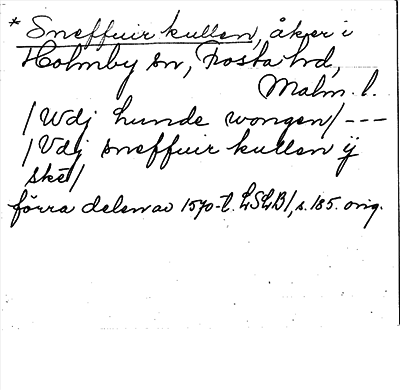 * Sneffuir kullen, åker i
Holmby sn, Frosta hd,
Malm. l.
/Wdj hunde wongen/ ---
/Vdj sneffuir kullen ÿ
sket/
förra delen av 1570-t. LSLB1, s. 185. orig.